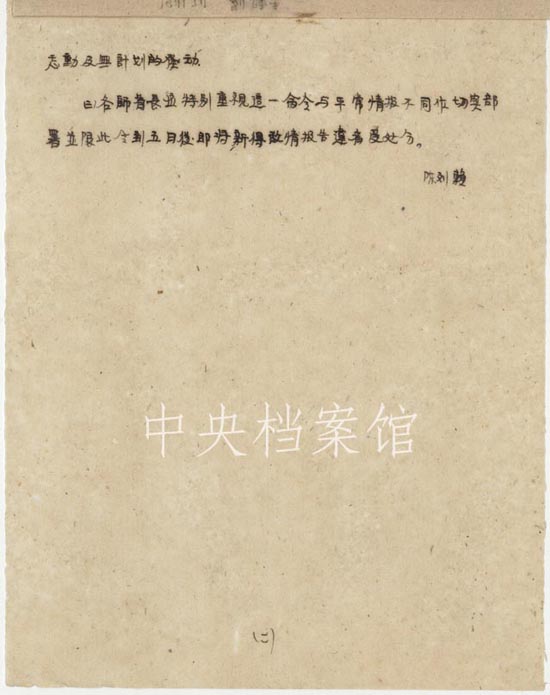 志動及無計划的發动.
各師首長应特别重視這一命令与平常情报不同作切实部
署並限此令到五日後即将新得敌情报告違者受处分。
陈刘賴
中央档案馆
(二)